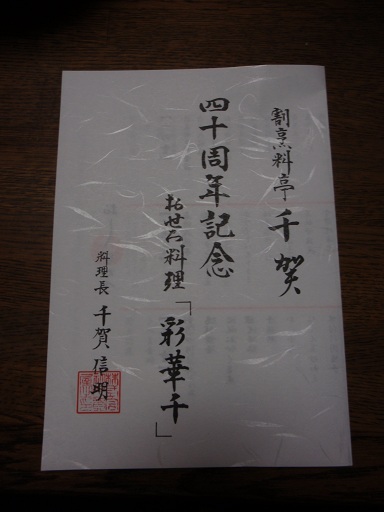 割烹料亭 千賀
四十周年記念
おせち料理「彩華千」
料理長 千賀信明